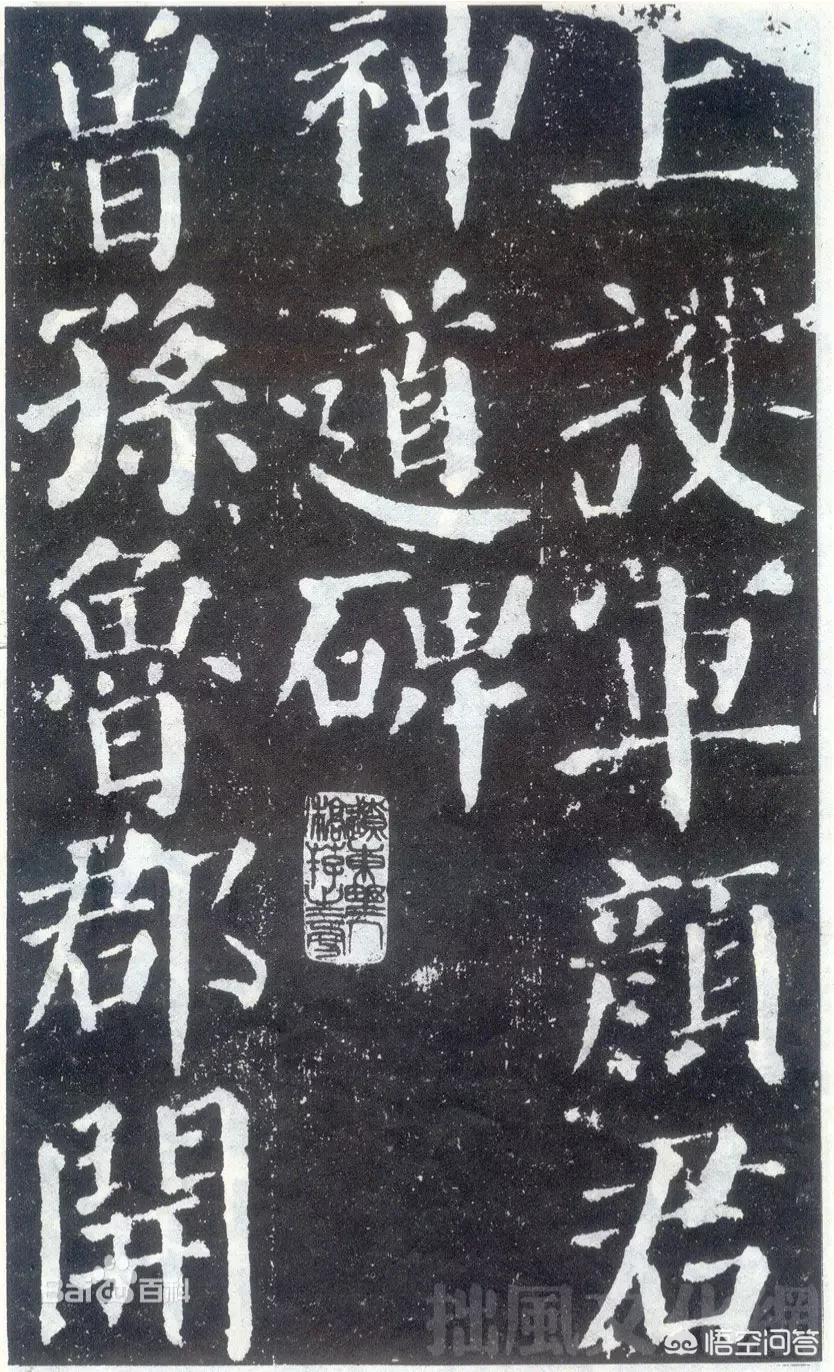 上護軍顏君
神道碑
曾孫魯郡開
Bai百科
拙風文化網
悟空问答